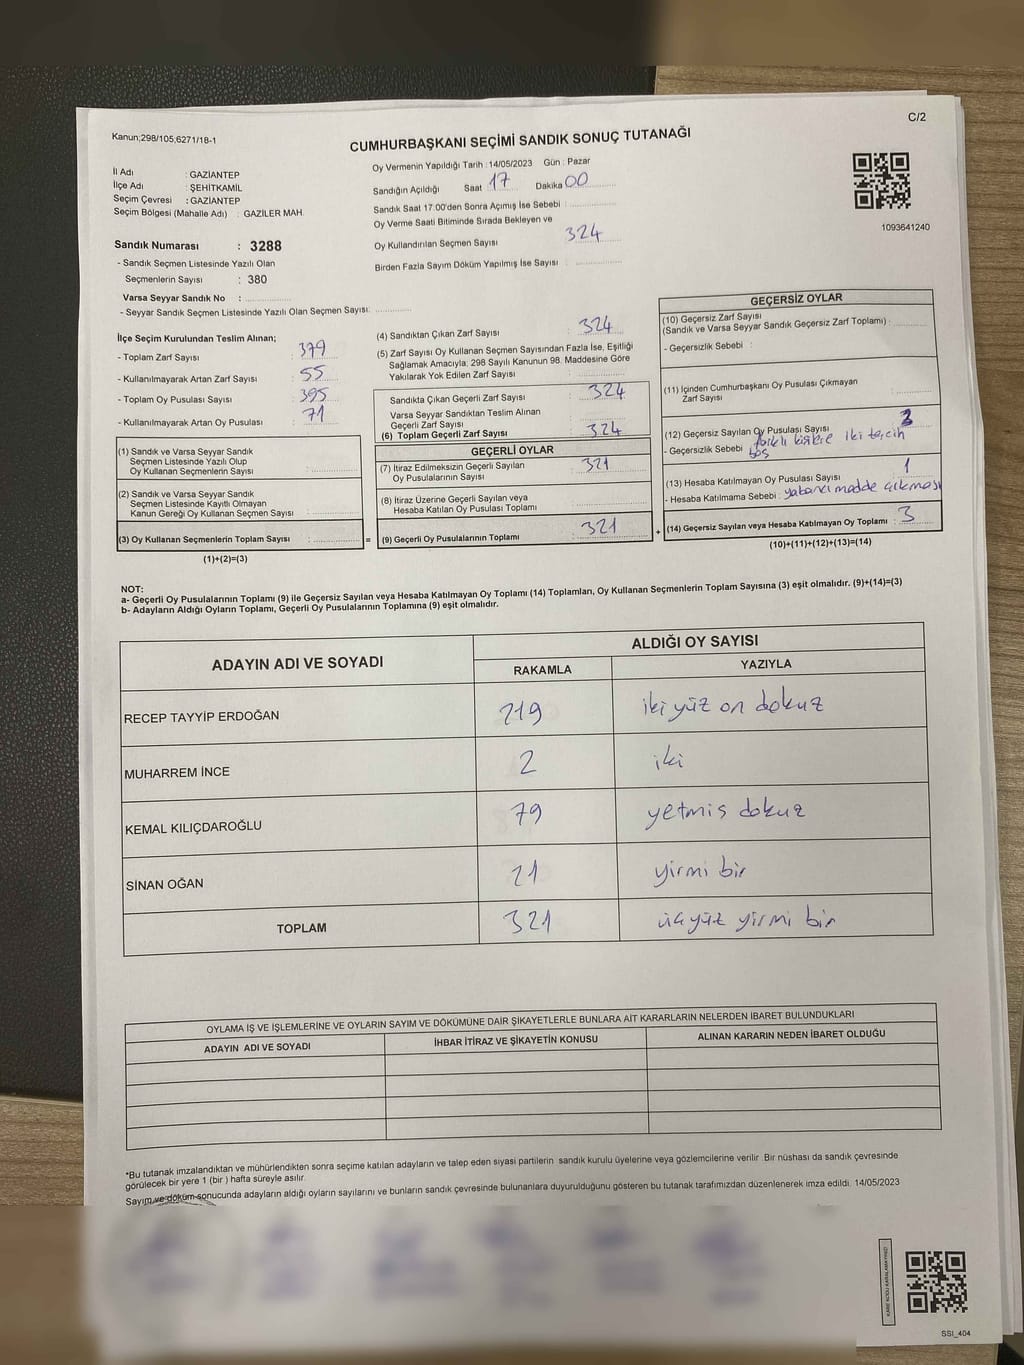 C/2
Kanun;298/105;6271/18-1
CUMHURBAŞKANI SEÇİMİ SANDIK SONUÇ TUTANAĞI
İl Adı : GAZİANTEP
İlçe Adı : ŞEHİTKAMİL
Seçim Çevresi : GAZİANTEP
Seçim Bölgesi (Mahalle Adı) : GAZİLER MAH.
Oy Vermenin Yapıldığı Tarih : 14/05/2023 Gün : Pazar
Sandığın Açıldığı Saat 17 Dakika 00
Sandık Saat 17:00'den Sonra Açımış İse Sebebi :
Oy Verme Saati Bitiminde Sırada Bekleyen ve
Oy Kullandırılan Seçmen Sayısı 324
Birden Fazla Sayım Döküm Yapılmış İse Sayısı :
1093641240
Sandık Numarası : 3288
- Sandık Seçmen Listesinde Yazılı Olan
Seçmenlerin Sayısı : 380
Varsa Seyyar Sandık No :
- Seyyar Sandık Seçmen Listesinde Yazılı Olan Seçmen Sayısı:
İlçe Seçim Kurulundan Teslim Alınan;
- Toplam Zarf Sayısı : 379
- Kullanılmayarak Artan Zarf Sayısı : 55
- Toplam Oy Pusulası Sayısı : 395
- Kullanılmayarak Artan Oy Pusulası : 71
(1) Sandık ve Varsa Seyyar Sandık
Seçmen Listesinde Yazılı Olup
Oy Kullanan Seçmenlerin Sayısı :
(2) Sandık ve Varsa Seyyar Sandık
Seçmen Listesinde Kayıtlı Olmayan
Kanun Gereği Oy Kullanan Seçmen Sayısı :
(3) Oy Kullanan Seçmenlerin Toplam Sayısı :
(1)+(2)=(3)
=
(4) Sandıktan Çıkan Zarf Sayısı : 324
(5) Zarf Sayısı Oy Kullanan Seçmen Sayısından Fazla İse, Eşitliği
Sağlamak Amacıyla; 298 Sayılı Kanunun 98. Maddesine Göre
Yakılarak Yok Edilen Zarf Sayısı :
Sandıkta Çıkan Geçerli Zarf Sayısı : 324
Varsa Seyyar Sandıktan Teslim Alınan
Geçerli Zarf Sayısı :
(6) Toplam Geçerli Zarf Sayısı : 324
GEÇERLİ OYLAR
(7) İtiraz Edilmeksizin Geçerli Sayılan
Oy Pusulalarının Sayısı : 321
(8) İtiraz Üzerine Geçerli Sayılan veya
Hesaba Katılan Oy Pusulası Toplamı :
(9) Geçerli Oy Pusulalarının Toplamı : 321
+
GEÇERSİZ OYLAR
(10) Geçersiz Zarf Sayısı
(Sandık ve Varsa Seyyar Sandık Geçersiz Zarf Toplamı) :
- Geçersizlik Sebebi :
(11) İçinden Cumhurbaşkanı Oy Pusulası Çıkmayan
Zarf Sayısı :
(12) Geçersiz Sayılan Oy Pusulası Sayısı
- Geçersizlik Sebebi farklı kişilere iki tercih
boş
(13) Hesaba Katılmayan Oy Pusulası Sayısı 1
- Hesaba Katılmama Sebebi : yabancı madde çıkması
(14) Geçersiz Sayılan veya Hesaba Katılmayan Oy Toplamı : 3
(10)+(11)+(12)+(13)=(14)
NOT:
a- Geçerli Oy Pusulalarının Toplamı (9) ile Geçersiz Sayılan veya Hesaba Katılmayan Oy Toplamı (14) Toplamları, Oy Kullanan Seçmenlerin Toplam Sayısına (3) eşit olmalıdır. (9)+(14)=(3)
b- Adayların Aldığı Oyların Toplamı, Geçerli Oy Pusulalarının Toplamına (9) eşit olmalıdır.
ADAYIN ADI VE SOYADI ALDIĞI OY SAYISI
RAKAMLA YAZIYLA
RECEP TAYYİP ERDOĞAN 219 iki yüz on dokuz
MUHARREM İNCE 2 iki
KEMAL KILIÇDAROĞLU 79 yetmis dokuz
SİNAN OĞAN 21 yirmi bir
TOPLAM 321 üçyüz yirmi bir
OYLAMA İŞ VE İŞLEMLERİNE VE OYLARIN SAYIM VE DÖKÜMÜNE DAİR ŞİKAYETLERLE BUNLARA AİT KARARLARIN NELERDEN İBARET BULUNDUKLARI
ADAYIN ADI VE SOYADI İHBAR İTİRAZ VE ŞİKAYETİN KONUSU ALINAN KARARIN NEDEN İBARET OLDUĞU
*Bu tutanak imzalandıktan ve mühürlendikten sonra seçime katılan adayların ve talep eden siyasi partilerin sandık kurulu üyelerine veya gözlemcilerine verilir. Bir nüshası da sandık çevresinde
görülecek bir yere 1 (bir ) hafta süreyle asılır.
Sayım ve döküm sonucunda adayların aldığı oyların sayılarını ve bunların sandık çevresinde bulunanlara duyurulduğunu gösteren bu tutanak tarafımızdan düzenlenerek imza edildi. 14/05/2023
SSI_404